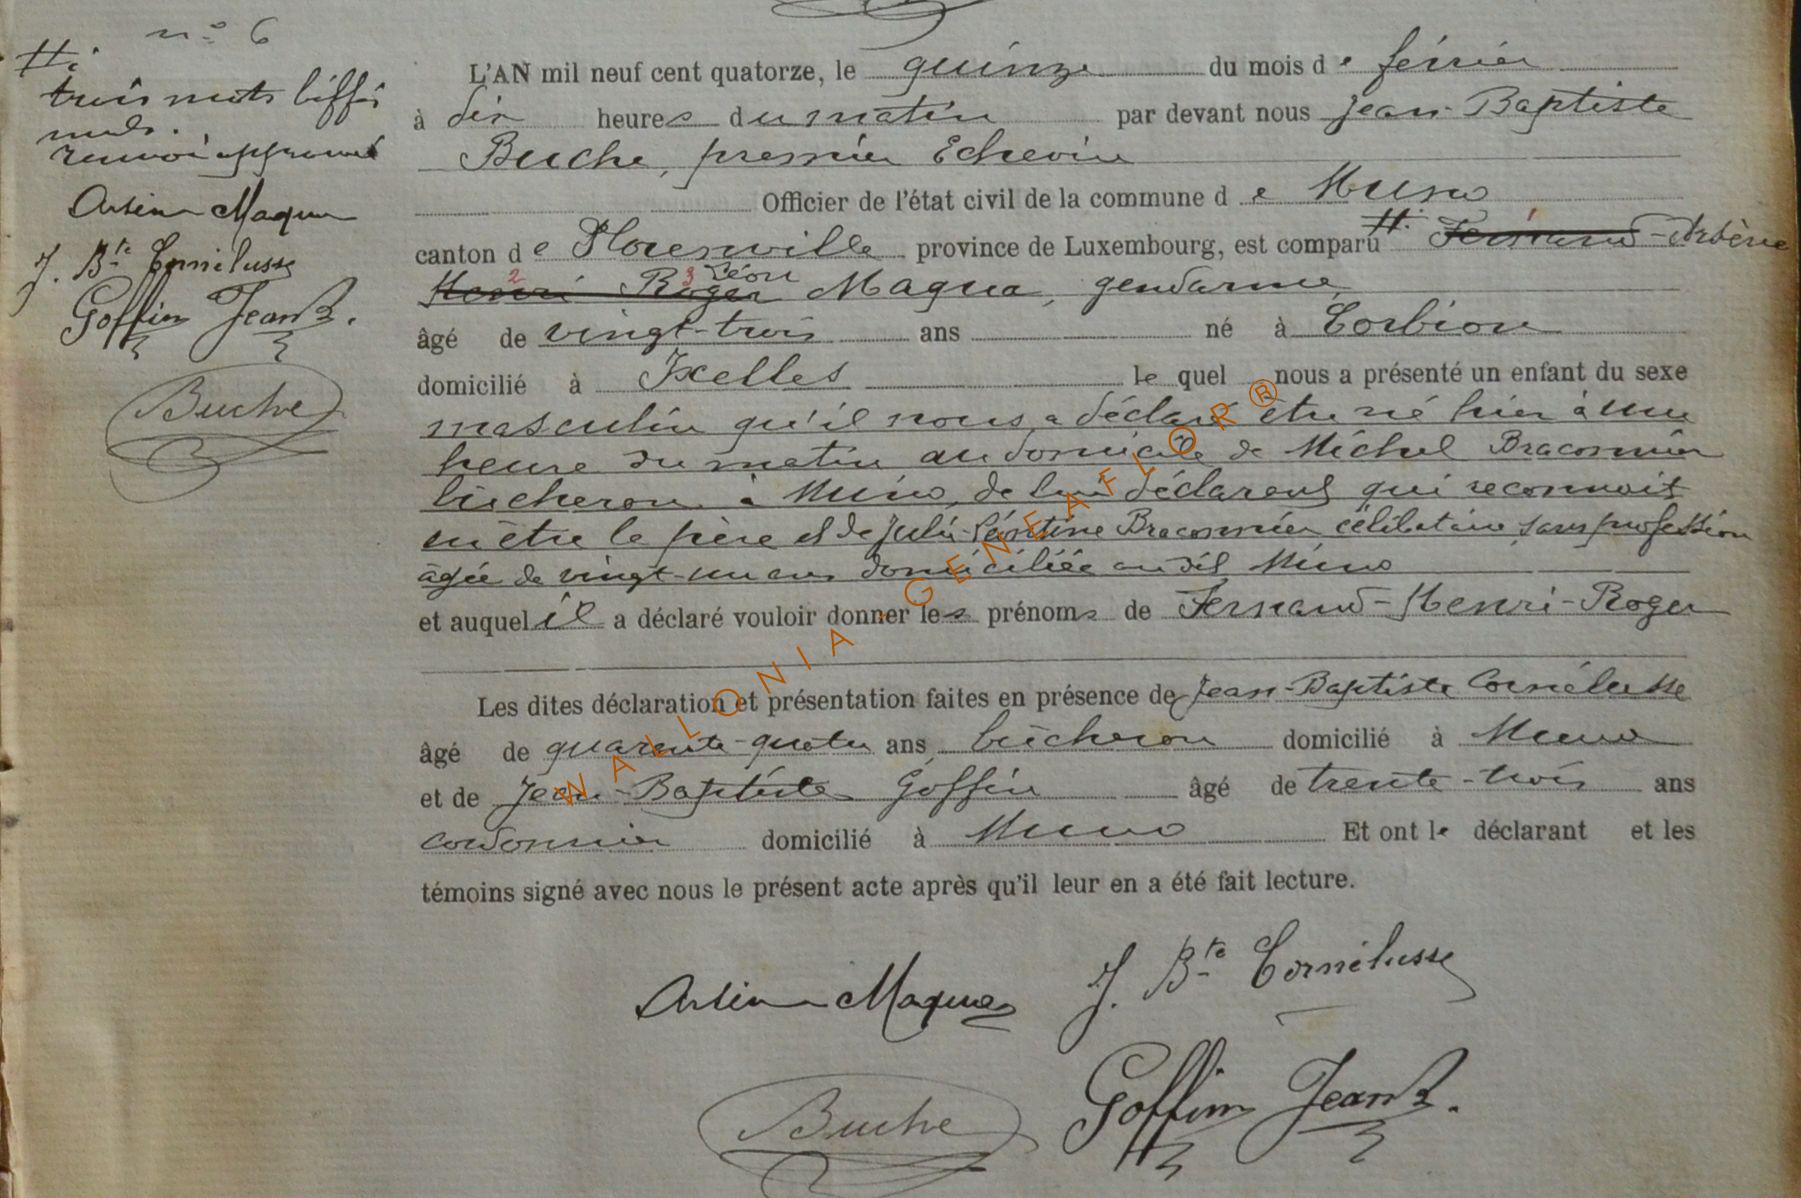 n° 6
#.
trois mots biffés
nuls.
renvoi approuvé
Arsène Maqua
J. Bte Cornélusse
Goffin Jean B.
Buche
L'AN mil neuf cent quatorze, le quinze du mois de février
à dix heures du matin par devant nous Jean-Baptiste
Buche, premier Echevin
Officier de l'état civil de la commune de Muno
canton de Florenville province de Luxembourg, est comparu #. Fernand-Arsène
Henri Roger Léon Maqua, gendarme
âgé de vingt-trois ans né à Corbion
domicilié à Ixelles lequel nous a présenté un enfant du sexe
masculin qu'il nous a déclaré être né hier à une
heure du matin au domicile de Michel Braconnier
bûcheron à Muno, de lui déclarant qui reconnait
en être le père et de Julie-Léontine Braconnier célibataire, sans profession
âgée de vingt-un ans domiciliée au dit Muno
et auquel il a déclaré vouloir donner les prénoms de Fernand-Henri-Roger
Les dites déclaration et présentation faites en présence de Jean-Baptiste Cornélusse
âgé de quarante-quatre ans, bûcheron domicilié à Muno
et de Jean-Baptiste Goffin âgé de trente-trois ans
cordonnier domicilié à Muno Et ont le déclarant et les
témoins signé avec nous le présent acte après qu'il leur en a été fait lecture.
Arsène Maqua
J. Bte Cornélusse
Buche
Goffin Jean B.
WALLONIA GENEAFLOR®